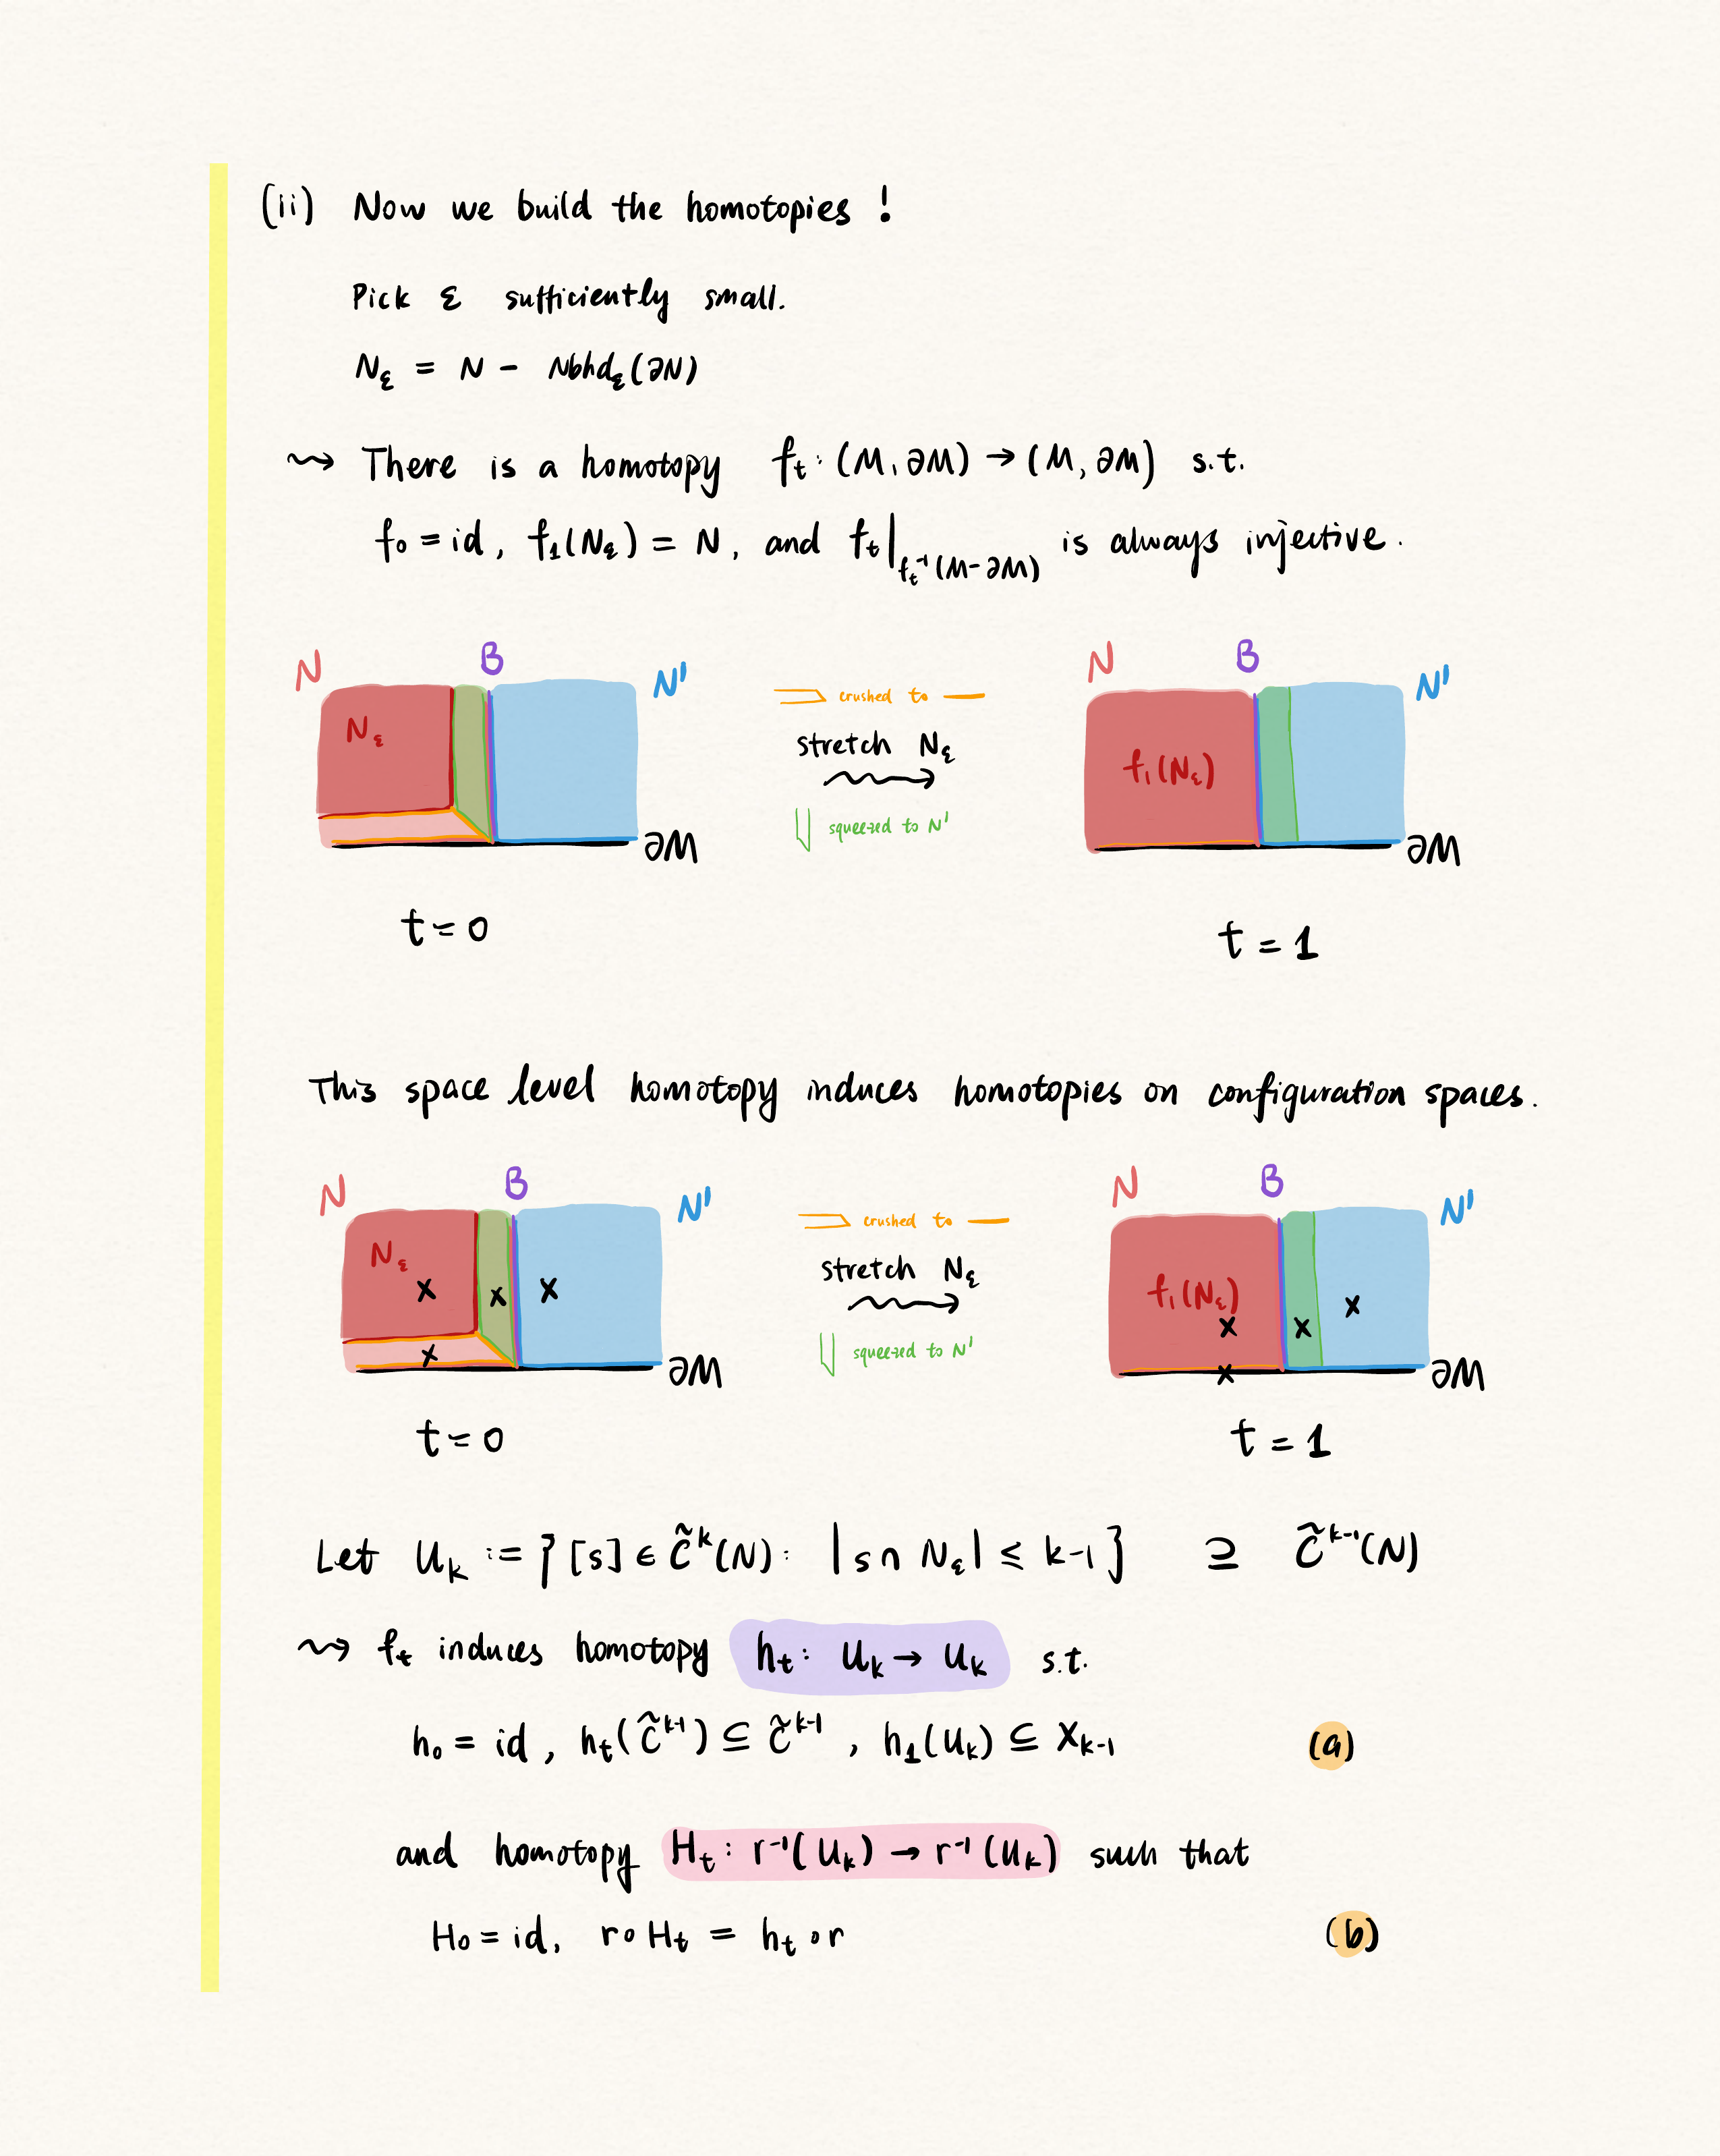 (ii) Now we build the homotopies !
Pick ε sufficiently small.
N_ε = N - Nbhd_ε(∂N)
⇝ There is a homotopy f_t : (M, ∂M) → (M, ∂M) s.t.
f_0 = id, f_1(N_ε) = N, and f_t|_{f_t^{-1}(M-∂M)} is always injective.
N B N' N B N'
N_ε crushed to f_1(N_ε)
stretch N_ε
squeezed to N'
∂M ∂M
t=0 t=1
This space level homotopy induces homotopies on configuration spaces.
N B N' N B N'
N_ε crushed to f_1(N_ε)
stretch N_ε
squeezed to N'
∂M ∂M
t=0 t=1
Let U_k := { [s] ∈ C̃^k(N) : |s ∩ N_ε| ≤ k-1 } ⊇ C̃^{k-1}(N)
⇝ f_t induces homotopy h_t : U_k → U_k s.t.
h_0 = id, h_t(C̃^{k-1}) ⊆ C̃^{k-1}, h_1(U_k) ⊆ X_{k-1} (a)
and homotopy H_t : r^{-1}(U_k) → r^{-1}(U_k) such that
H_0 = id, r∘H_t = h_t∘r (b)